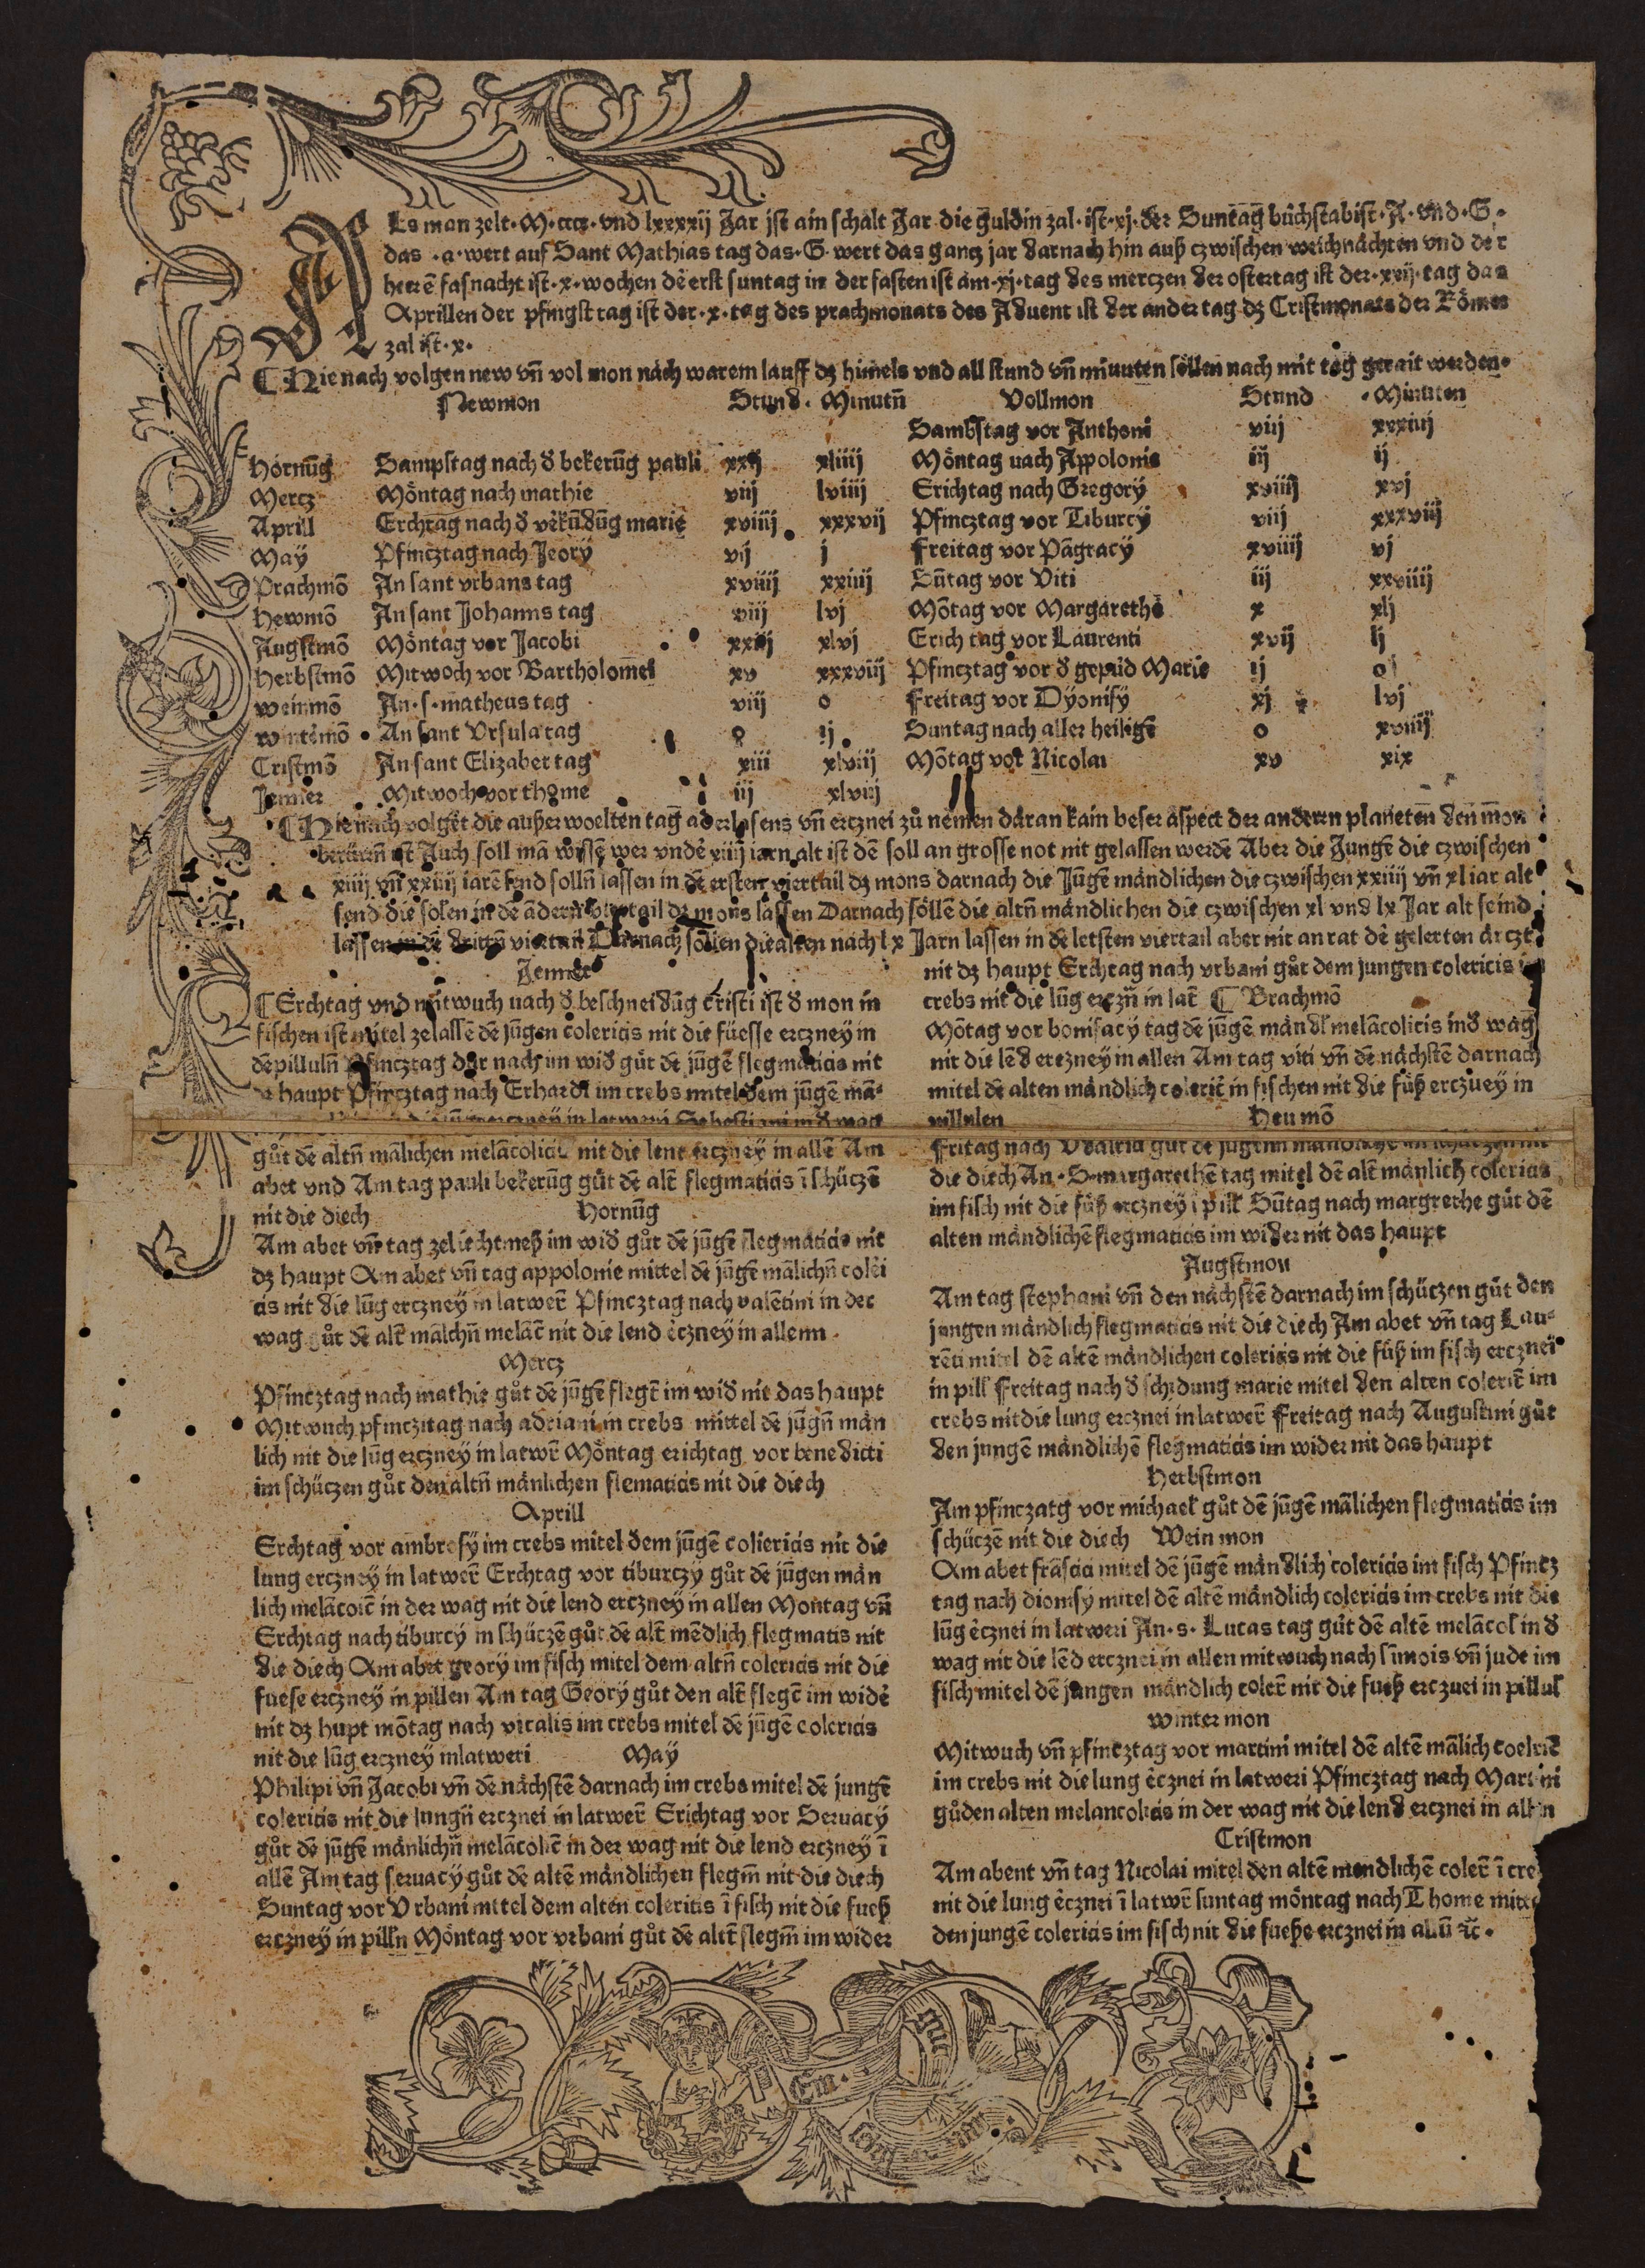 Als man zelt·M·cccc·vnd lxxxxij Jar jst ain schalt Jar die guldin zal·ist·xj·der Suntag bůchstab ist·A·vnd·G·
das ·a·wert auf Sant Mathias tag das·G·wert das gantz jar darnach hin auß czwischen weichnächten vnd der
herrē fasnacht ist·x·wochen dē erst suntag in der fasten ist am·xj·tag des merczen der ostertag ist der·xxij·tag das
Aprillen der pfingst tag ist der·x·tag des prachmonats des Aduent ist der ander tag dz Cristmonats der Römer
zal ist·x·
¶ Hie nach volgen new vñ vol mon nåch warem lauff dz himels vnd all stund vñ minuten söllen nach mit tag gerait werden·
Newmon Stund· Minutñ Vollmon Stund ·Minuten
Sambstag vor Anthoni viij xxxiiij
Hornūg Sampstag nach d bekerūg pauli xxij xliiij Möntag nach Appolonie iij ij
Mercz Möntag nach mathie viij lviiij Erichtag nach Gregorÿ xviiij xvj
Aprill Erchtag nach d vēkūdūg marie xviiij xxxvij Pfincztag vor Tiburcÿ viij xxxviij
Maÿ Pfincztag nach Jeorÿ vij j Freitag vor Pāgracÿ xviiij vj
Prachmō An sant vrbans tag xviiij xxiiij Sūtag vor Viti iij xxviiij
Hewmō An sant Johanns tag viij lvj Mōtag vor Margarethē x xlj
Augstmō Möntag vor Jacobi xxiij xlvj Erich tag vor Laurenti xvij lj
Herbstmō Mitwoch vor Bartholomei xv xxxviij Pfincztag vor d gepurd Marie ij o
Weinmō An·s·matheus tag viij o Freitag vor Dÿonisÿ xj lvj
Wintēmō An sant Vrsula tag o ij Suntag nach aller heiligē o xviiij
Cristmō An sant Elizabet tag xiii xlviij Mōtag vor Nicolai xv xix
Jenner Mitwoch vor thome iij xlviij
¶ Hie nåch volget die außer woelten tag aderlasens vñ erczneī zů nemen daran kain beser aspect der andern planeten den mon
berürn ist Auch soll mā wissē wer vndē xiiij iarn alt ist dē soll an grosse not nit gelassen werdē Aber die Jungē die czwischen
xiiij vñ xxiiij iarē sind solln lassen in dē ersten viertail dz mons darnach die Jūgē mändlichen die czwischen xxiiij vñ xl iar alt
send die solen in dē ādern viertail dz mons lassen Darnach söllē die altñ mändlichen die czwischen xl vnd lx Jar alt seind
lassen in dē dritñ viertail Darnach söllen die alten nach lx Jarn lassen in dē letsten viertail aber nit an rat dē gelerten årczt
Jenner
¶ Erchtag vnd mitwuch nach d beschneidūg cristi ist d mon in
fischen ist mitel zelassē dē jūgen colericis nit die füesse erczneÿ in
dē pillulñ Pfincztag dar nach im wid gůt dē jūgē flegmaticis nit
dz haupt Pfincztag nach Erhardi im crebs mitel dem jūgē mā-
erczneÿ in latweri Sebestiani in d wag
gůt dē altñ mālichen melācolicis nit die lent erczneÿ in allē Am
abet vnd Am tag pauli bekerūg gůt dē altē flegmaticis ī schüczē
nit die diech Hornūg
Am abet vñ tag zeliechtmeß im wid gůt dē jūgē flegmaticis nit
dz haupt Am abet vñ tag appolonie mittel dē jūgē mālichñ coleri
cis nit die lūg erczneÿ in latwerē Pfincztag nach valētini in der
wag gůt dē altē mālchñ melācē nit die lend ērczneÿ in allenn·
Mercz
Pfincztag nach mathie gůt dē jūgē flegcē im wid nit das haupt
Mitwuch pfincztag nach adriani in crebs mittel dē jūgñ män
lich nit die lūg erczneÿ in latwerē Möntag erichtag vor benedicti
im schüczen gůt den altñ mänlichen flematicis nit die diech
Aprill
Erchtag vor ambrosÿ im crebs mitel dem jūgē colericis nit die
lung erczneÿ in latwerē Erchtag vor tiburczÿ gůt dē jūgen män
lich melācolcē in der wag nit die lend erczneÿ in allen Montag vñ
Erchtag nach tiburcÿ in schüczē gůt dē altē mēdlich flegmatis nit
die diech Am abet georÿ im fisch mitel dem altñ colericis nit die
fuese erczneÿ in pillen Am tag Georÿ gůt den altē flegcē im widē
nit dz hupt mōtag nach vitalis im crebs mitel dē jūgē colericis
nit die lūg erczneÿ inlatweri Maÿ
Philipi vñ Jacobi vñ dē nächstē darnach im crebs mitel dē jungē
colericis nit die lungñ erczneī in latwerē Erichtag vor Seruacÿ
gůt dē jūgē mänlichñ melācolicē in der wag nit die lend erczneÿ ī
allē Am tag seruacÿ gůt dē altē mändlichen flegm̄ nit die diech
Suntag vor Vrbani mitel dem alten colericis ī fisch nit die fueß
erczneÿ in pilln Möntag vor vrbani gůt dē altē flegm̄ im wider
nit dz haupt Erchtag nach vrbani gůt dem jungen colericis i
crebs nit die lūg ercznñ in latē ¶ Brachmō
Mōtag vor bonifacÿ tag dē jūgē mändl melācolicis ind wag
nit die lēd erezneÿ in allen Am tag viti vñ dē nächstē darnach
mitel dē alten mändlich colericē in fischen nit die füß erczneÿ in
pillulen Heumō
Fritag nach Vdalrici gůt dē
die diech An·S·margarethē tag mitel dē altē mänlich colericis
im fisch nit die füß erczneÿ ī pill Sūtag nach margrethe gůt dē
alten mändlichē flegmaticis im wider nit das haupt
Augstmon
Am tag stephani vñ den nächstē darnach im schüczen gůt den
jungen mändlich flegmaticis nit die diech Am abet vñ tag Lau-
rēti mitel dē altē mändlichen colericis nit die füß im fisch erczneï
in pill Freitag nach d schidung marie mitel den alten colericē im
crebs nit die lung erczneī in latwerē Freitag nach Augustini gůt
den jungē mändlichē flegmaticis im wider nit das haupt
Herbstmon
Am pfinczatg vor michael gůt dē jūgē mālichen flegmaticis im
schüczē nit die diech Wein mon
Am abet frāscici mitel dē jūgē mändlich colericis im fisch Pfincz
tag nach dionisÿ mitel dē altē mändlich colericis im crebs nit die
lūg ērcznei in latweri An·s·Lucas tag gůt dē altē melācol in d
wag nit die lēd ercznei in allen mitwuch nach simois vñ jude im
fisch mitel dē jungen mändlich colerē nit die fueß ercznei in pillul
Winter mon
Mitwuch vñ pfincztag vor martini mitel dē altē mālich coelricē
im crebs nit die lung ērcznei in latweri Pfincztag nach Martini
gůden alten melancolicis in der wag nit die lend ercznei in allen
Cristmon
Am abent vñ tag Nicolai mitel den altē mendlichē colerē ī cre
nit die lung ērcznei ī latwē suntag möntag nach Thome mitte
den jungē colericis im fisch nit die fueße ercznei in allñ ꝛc·
Ein· gut